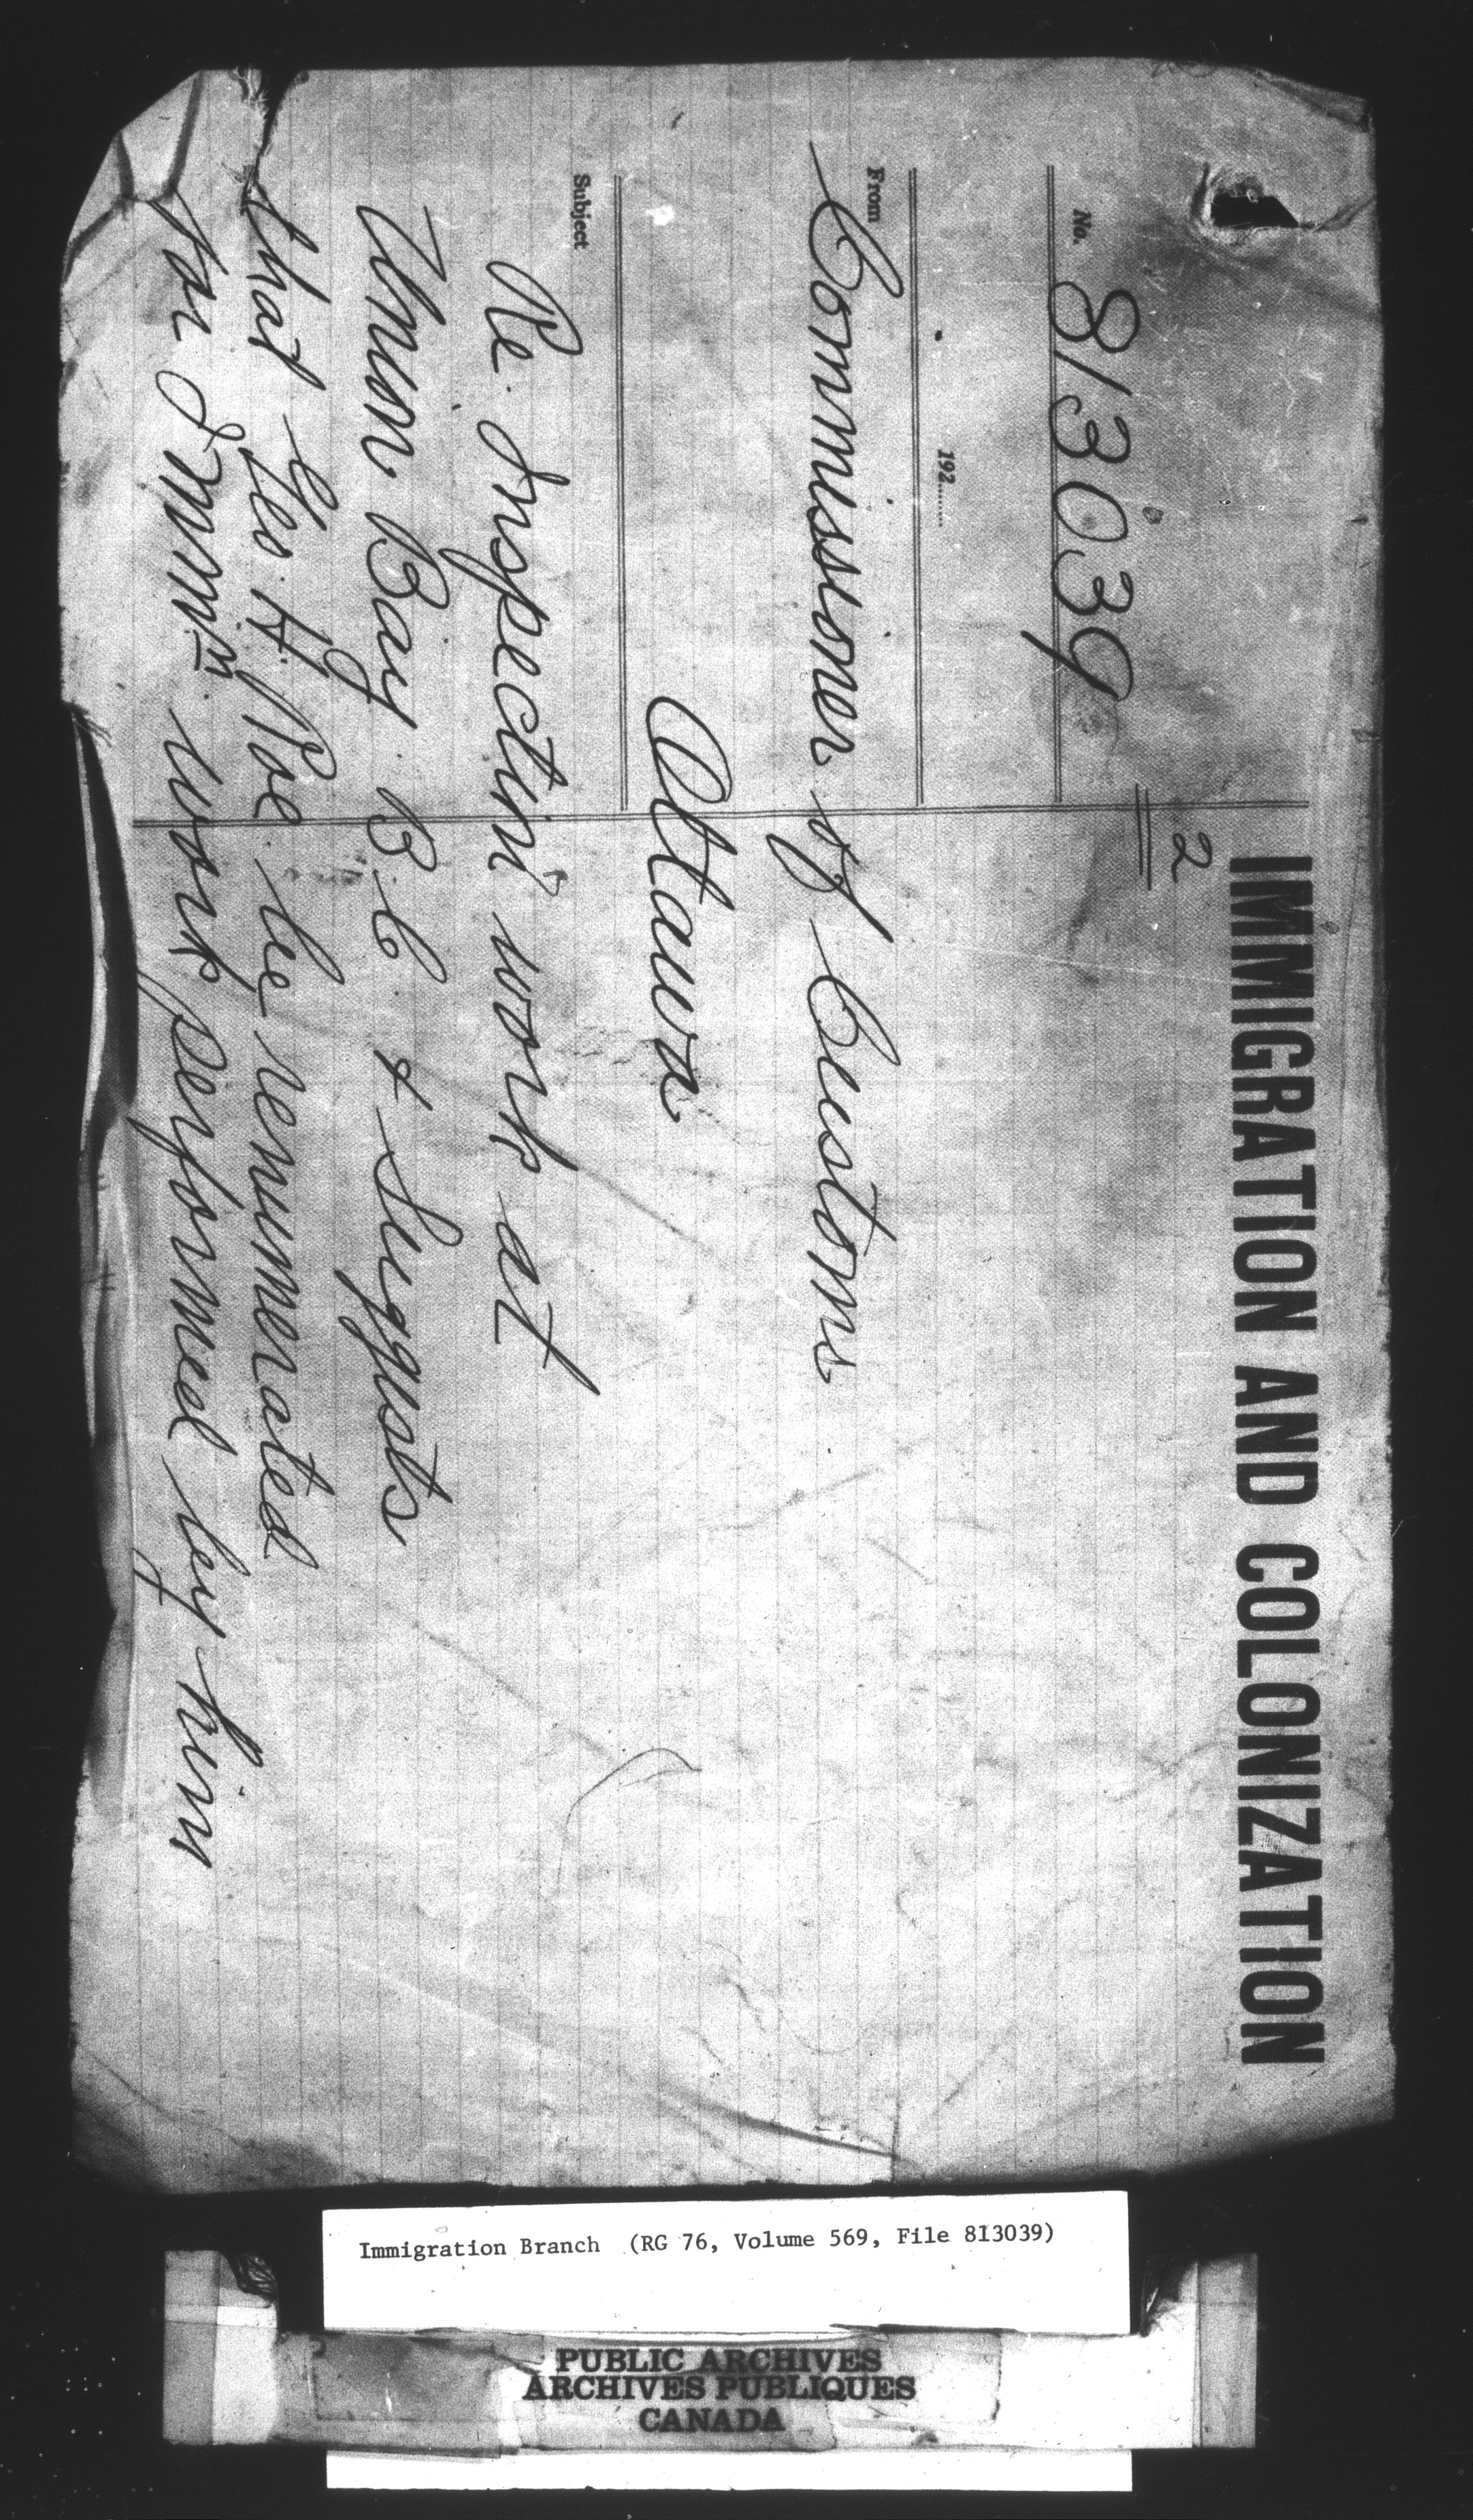 IMMIGRATION AND COLONIZATION
2
No. 813039
192........
From Commissioner of Customs
Ottawa
Subject
Re. Inspection work at
Union Bay B.C & Suggests
that Geo. H. Roe be remunerated
for Immn. work performed by him
Immigration Branch (RG 76, Volume 569, File 813039)
PUBLIC ARCHIVES
ARCHIVES PUBLIQUES
CANADA